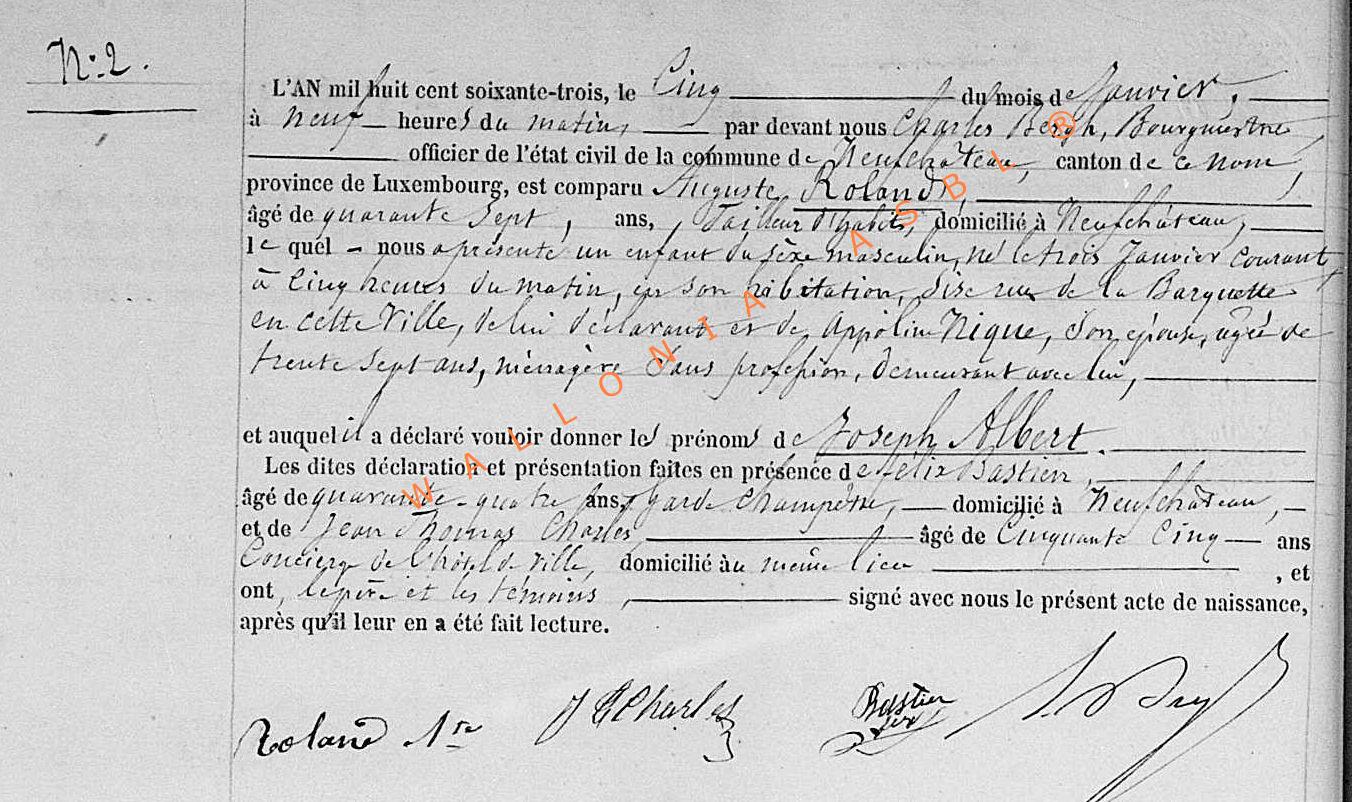 N:2.
L'AN mil huit cent soixante-trois, le Cinq du mois de Janvier,
à neuf heures du matin, par devant nous Charles Bergh, Bourgmestre,
officier de l'état civil de la commune de Neufchâteau, canton de ce nom,
province de Luxembourg, est comparu Auguste Roland,
âgé de quarante Sept, ans, Tailleur d'habits, domicilié à Neufchâteau,
le quel nous a présenté un enfant du sèxe masculin, né le trois Janvier courant
à Cinq heures du matin, en son habitation, sise rue de la Barquette
en cette Ville, de lui déclarant et de Appoline Nique, son épouse, agée de
trente sept ans, ménagère sans profession, demeurant avec lui,
et auquel il a déclaré vouloir donner les prénoms de Joseph Albert.
Les dites déclaration et présentation faites en présence de félix Bastien,
âgé de quarante-quatre ans, garde champêtre, domicilié à Neufchâteau,
et de Jean Thomas Charles, âgé de Cinquante Cinq ans
Concierge de l'hôtel de Ville, domicilié au même lieu , et
ont, le père et les témoins, signé avec nous le présent acte de naissance,
après qu'il leur en a été fait lecture.
Roland Charles Bastien
WALLONIA ASBL ®